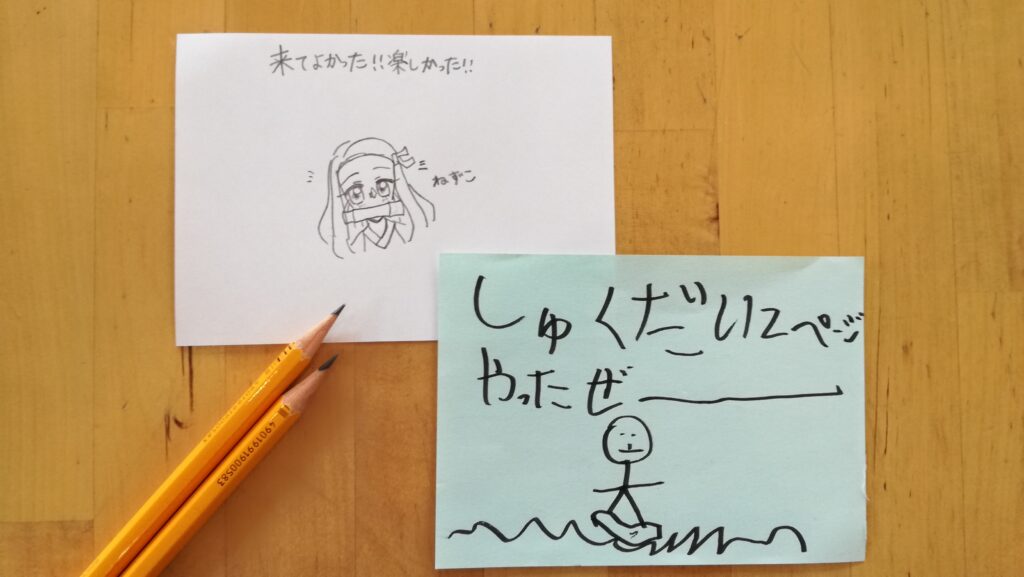 来てよかった!!楽しかった!!
ねずこ
しゅくだい2ページ
やったぜー
4901991900583